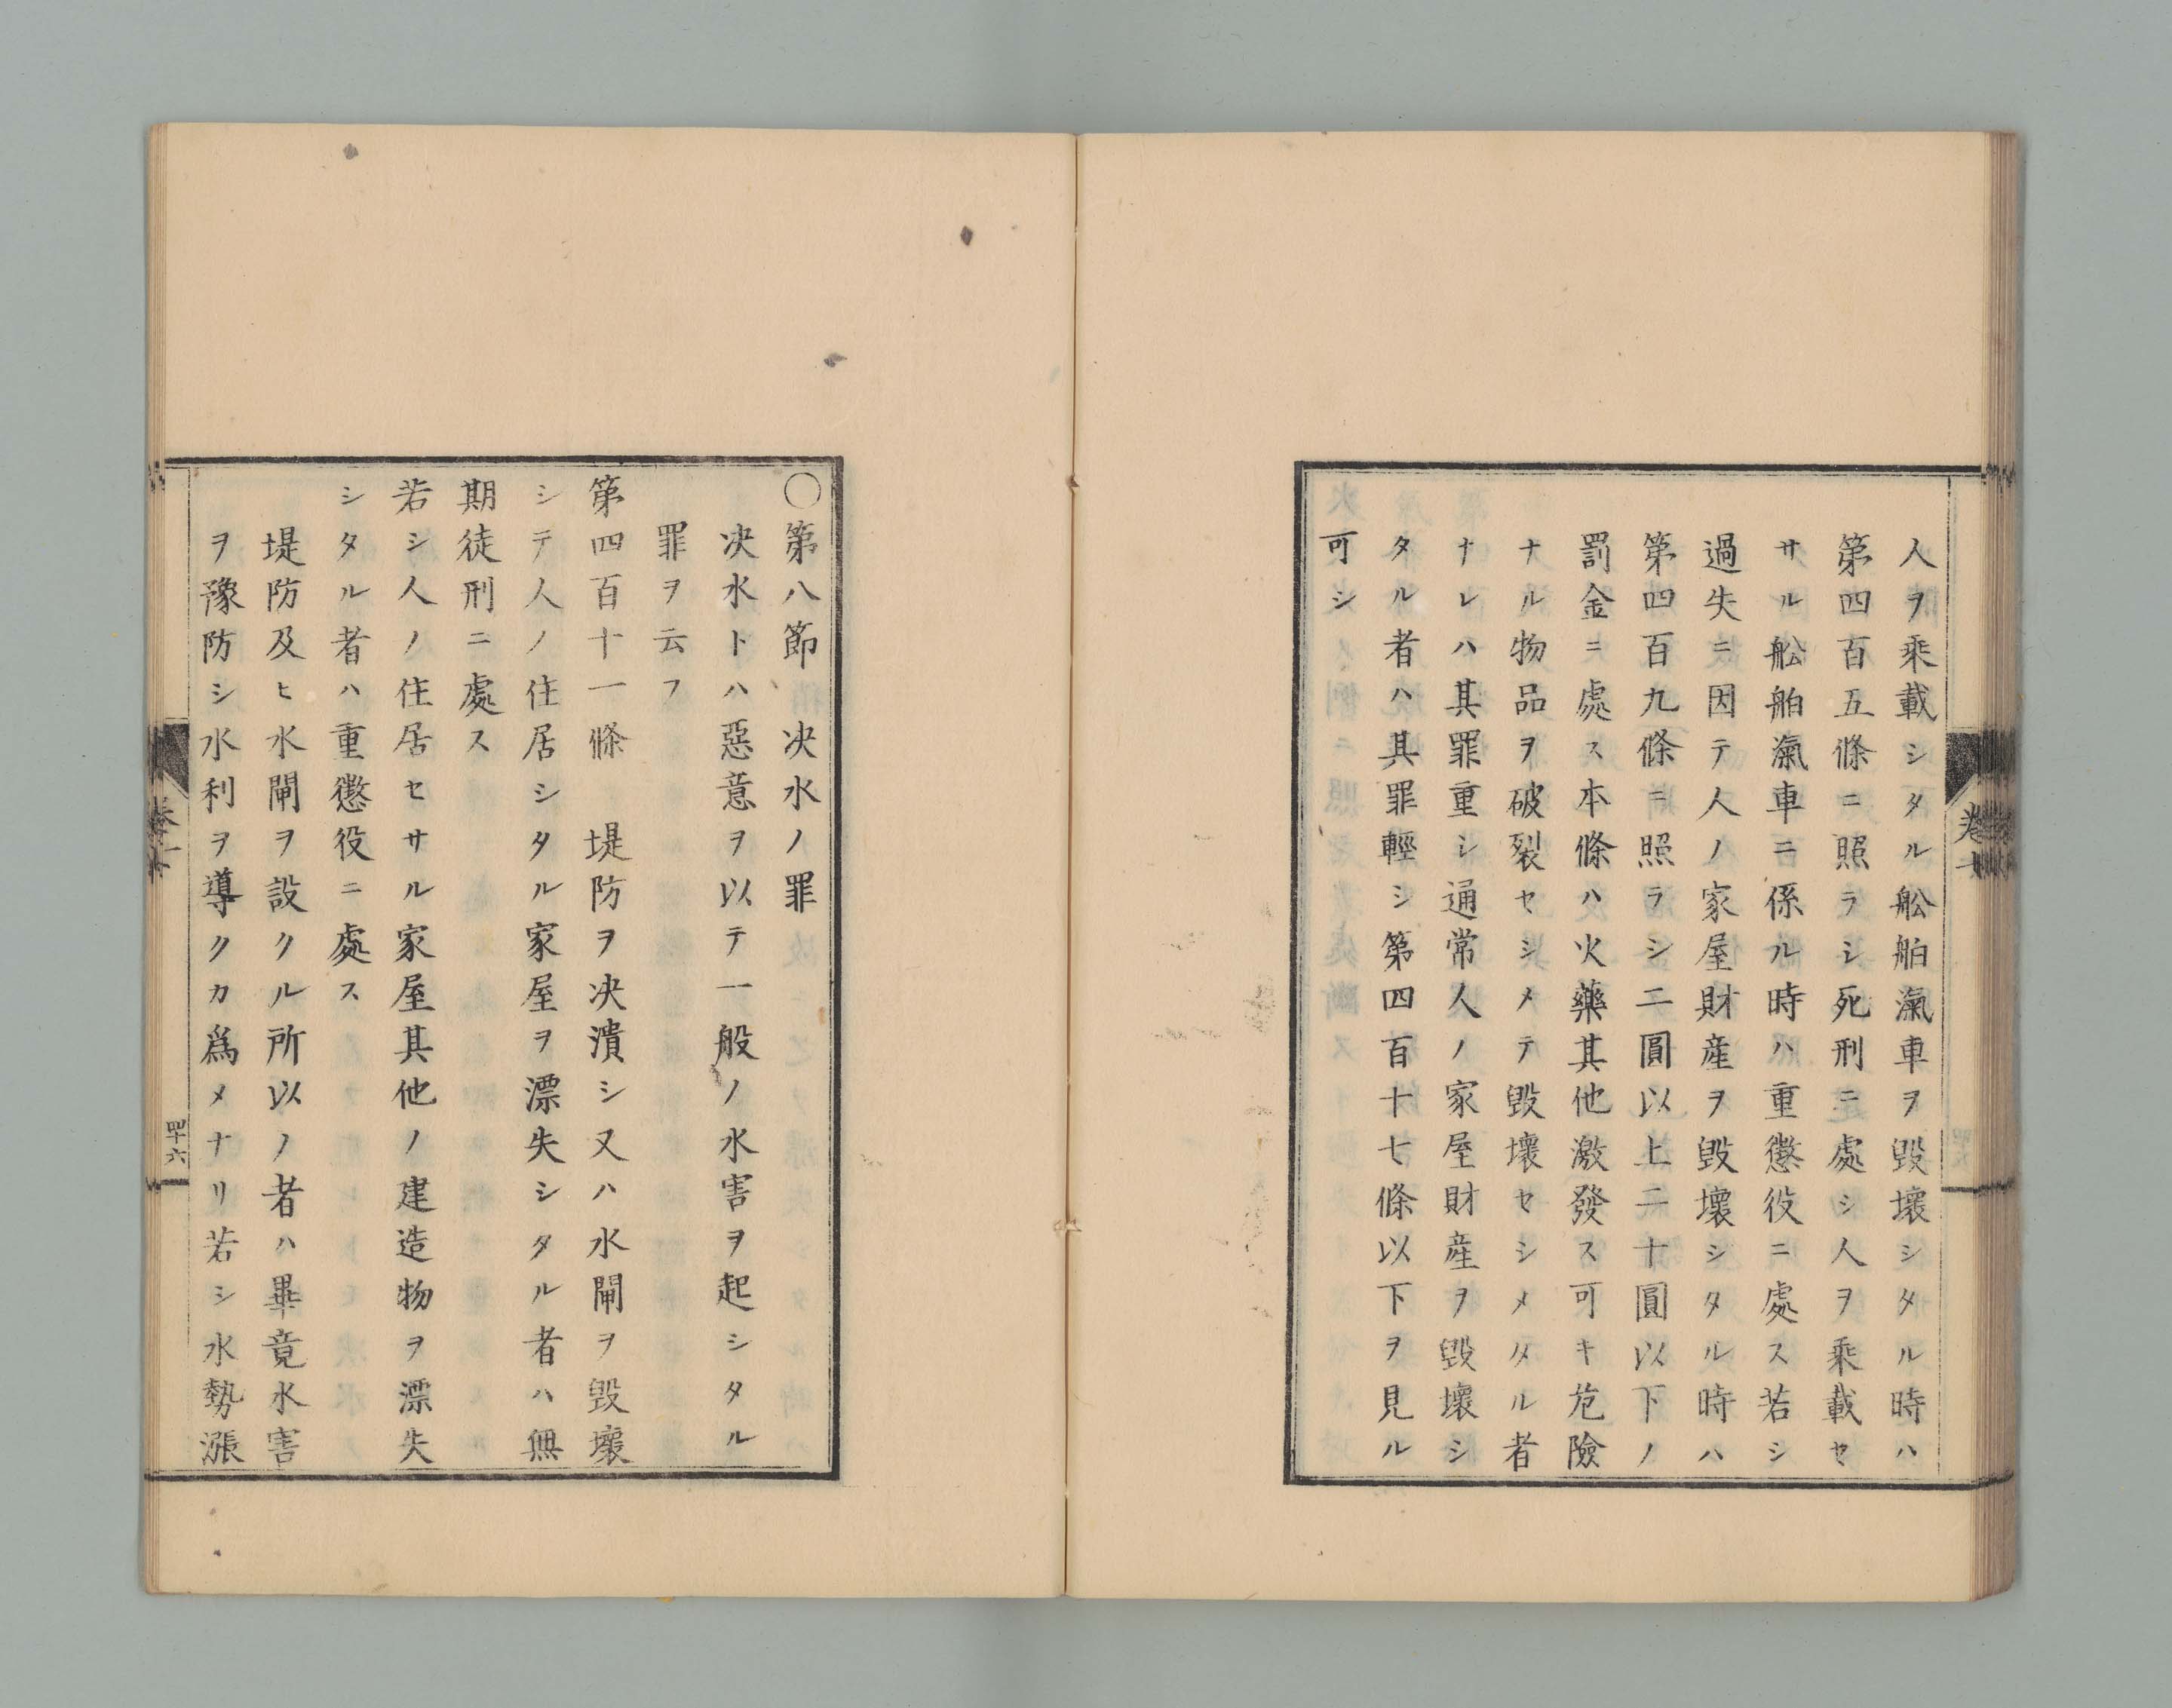 人ヲ乘載シタル舩舶滊車ヲ毀壞シタル時ハ
第四百五條ニ照ラシ死刑ニ處シ人ヲ乘載セ
サル舩舶滊車ニ係ル時ハ重懲役ニ處ス若シ
過失ニ因テ人ノ家屋財産ヲ毀壞シタル時ハ
第四百九條ニ照ラシ二圓以上二十圓以下ノ
罰金ニ處ス本條ハ火藥其他激發ス可キ危險
ナル物品ヲ破裂セシメテ毀壞セシメタル者
ナレハ其罪重シ通常人ノ家屋財産ヲ毀壞シ
タル者ハ其罪輕シ第四百十七條以下ヲ見ル
可シ
○第八節　决水ノ罪
决水トハ惡意ヲ以テ一般ノ水害ヲ起シタル
罪ヲ云フ
第四百十一條　堤防ヲ决潰シ又ハ水閘ヲ毀壞
シテ人ノ住居シタル家屋ヲ漂失シタル者ハ無
期徒刑ニ處ス
若シ人ノ住居セサル家屋其他ノ建造物ヲ漂失
シタル者ハ重懲役ニ處ス
堤防及ヒ水閘ヲ設クル所以ノ者ハ畢竟水害
ヲ豫防シ水利ヲ導クカ爲メナリ若シ水勢漲
四十六